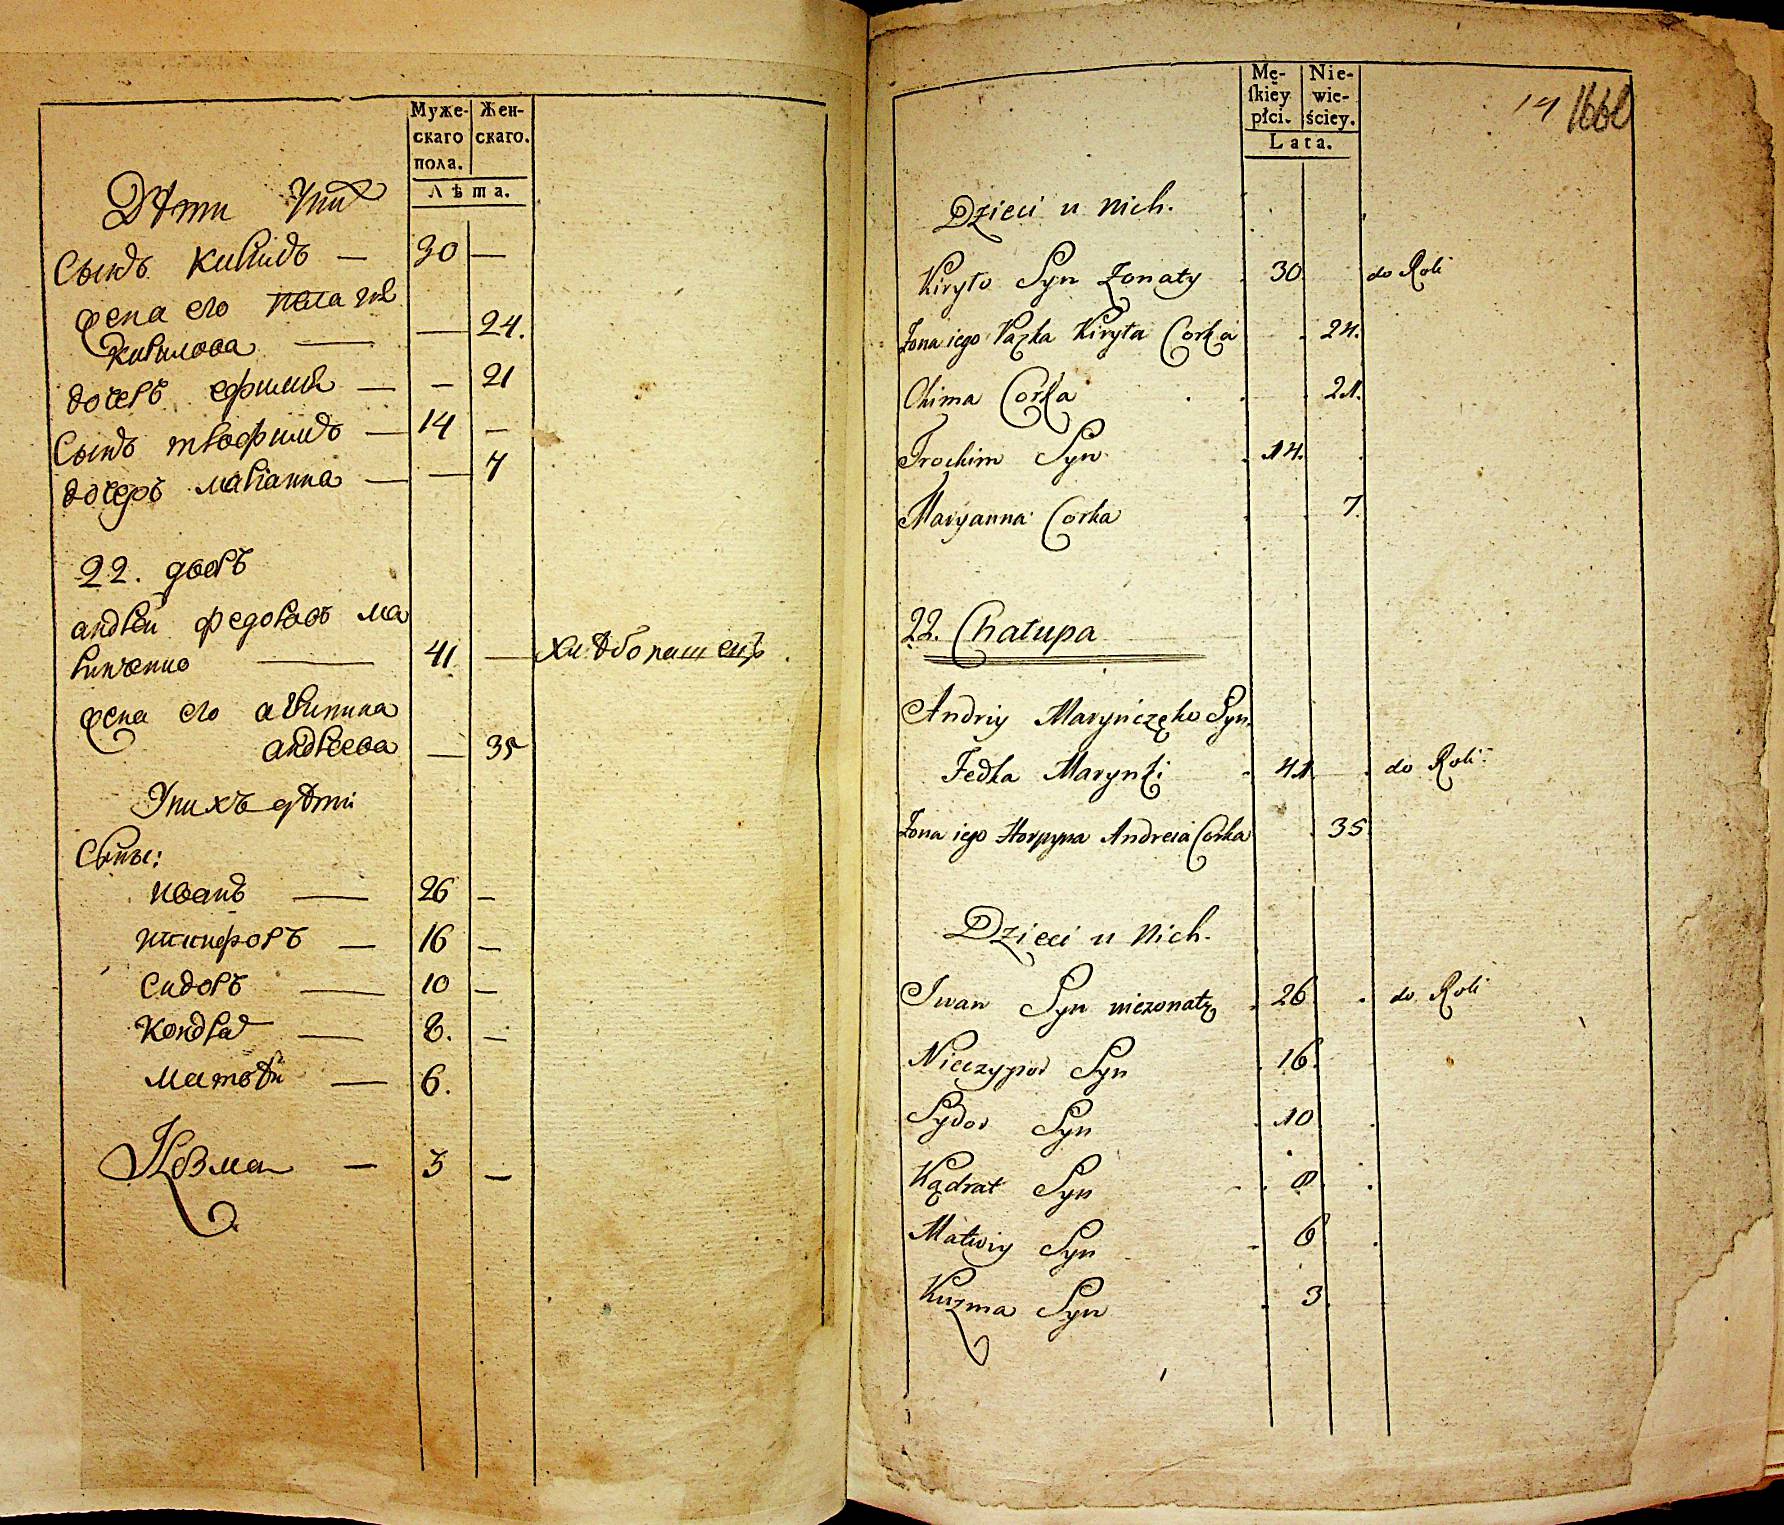 Муже-
скаго
пола.
Жен-
скаго.
Лѣта.
Дѣти
Сынъ Кирилъ — 30 —
жена его
Кирилова — — 24.
дочеръ — — 21
Сынъ трофимъ — 14 —
дочеръ мариянна — — 7
22. дворъ
андрей федоровъ ма
ринченко — 41 — хлѣбопашецъ.
жена его агрипина
андреева — 35
У нихъ дѣти
Сыны:
иванъ — 26 —
никифоръ — 16 —
Сидоръ — 10 —
Кондрат — 8. —
матвѣй — 6.
Козма — 3 —
Mę-
skiey
płci.
Nie-
wie-
ściey.
Lata.
14 1660
Dzieci u nich.
Kiryło Syn żonaty 30 do Roli
Żona iego Kiryła Corka 24.
Chima Corka 21.
Trochim Syn 14.
Maryanna Corka 7.
22. Chałupa
Andriy Maryńczęko Syn
Fedka Marynki 41 do Roli
Żona iego Horpyna Andreia Corka 35
Dzieci u Nich.
Iwan Syn niezonaty 26 do Roli
Nieczypor Syn 16
Sydor Syn 10
Kądrat Syn 8
Matwiy Syn 6
Kuzma Syn 3